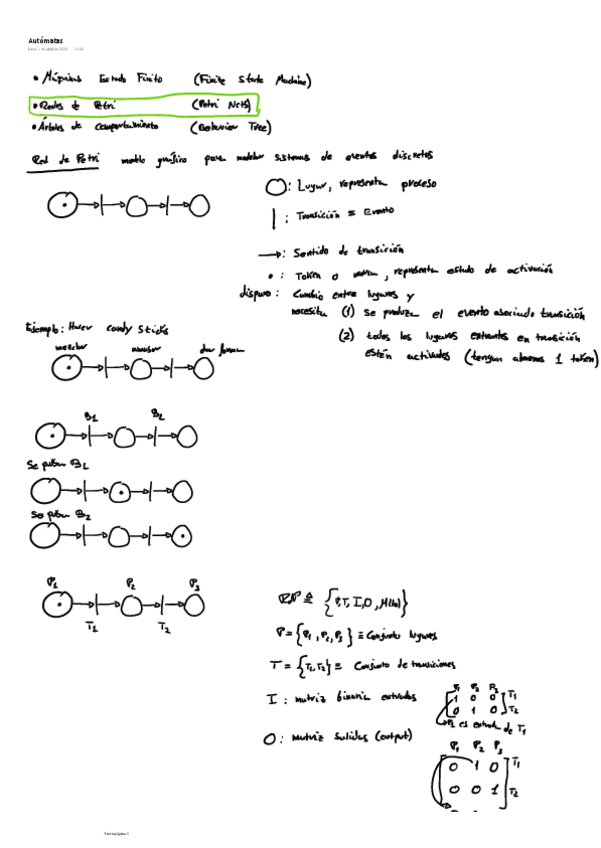 Autómatas
• Máquinas Estado Finito (Finite State Machine)
• Redes de Petri (Petri Nets)
• Árboles de comportamiento (Behavior Tree)
Red de Petri modelo gráfico para modelar sistemas de eventos discretos
: Lugar, representa proceso
: Transición ≡ Evento
→: Sentido de transición
• : Token o marca, representa estado de activación
disparo: Cambio entre lugares y
necesita (1) Se produzca el evento asociado transición
(2) todos los lugares entrantes en transición
están activados (tengan al menos 1 token)
Ejemplo: Hacer candy sticks
mezclar amasar dar forma
B1 B2
Se pulsa B1
Se pulsa B2
P1 P2 P3
T1 T2
RdP ≜ {P,T,I,O,M(to)}
P = {P1, P2, P3} ≡ Conjunto lugares
T = {T1, T2} ≡ Conjunto de transiciones
I : matriz binaria entradas
P1 P2 P3
1 0 0 T1
0 1 0 T2
es entrada de T1
O : matriz salidas (output)
P1 P2 P3
0 1 0 T1
0 0 1 T2